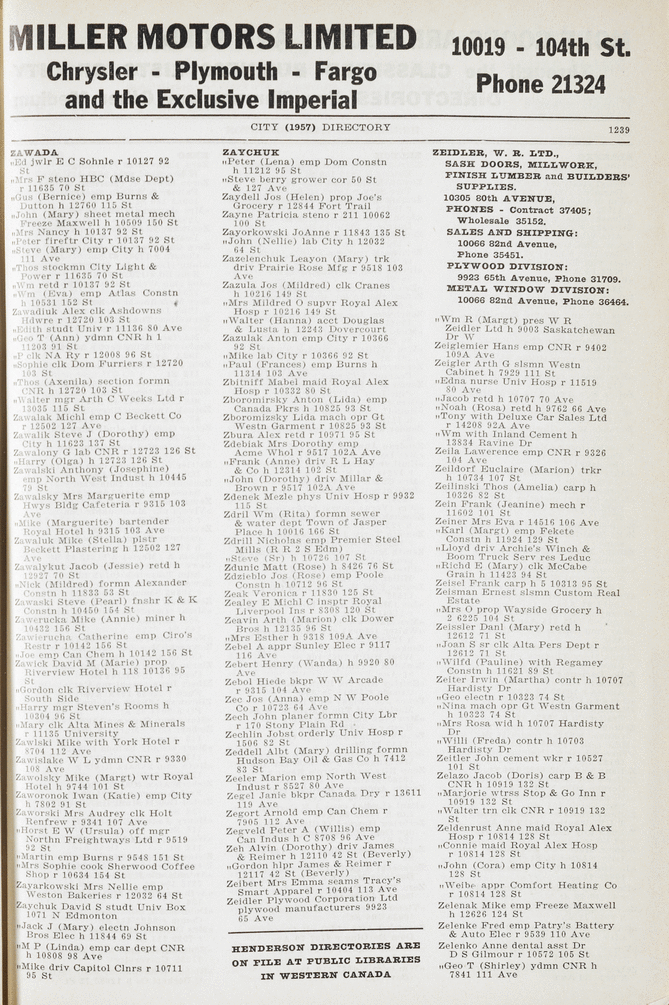 MILLER MOTORS LIMITED
Chrysler - Plymouth - Fargo
and the Exclusive Imperial
10019 - 104th St.
Phone 21324
CITY (1957) DIRECTORY
1239
ZAWADA
„Ed jwlr E C Sohnle r 10127 92
St
„Mrs F steno HBC (Mdse Dept)
r 11635 70 St
„Gus (Bernice) emp Burns &
Dutton h 12760 115 St
„John (Mary) sheet metal mech
Freeze Maxwell h 10509 150 St
„Mrs Nancy h 10137 92 St
„Peter fireftr City r 10137 92 St
„Steve (Mary) emp City h 7004
111 Ave
„Thos stockmn City Light &
Power r 11635 70 St
„Wm retd r 10137 92 St
„Wm (Eva) emp Atlas Constn
h 10531 152 St
Zawadiuk Alex clk Ashdowns
Hdwre r 12720 103 St
„Edith studt Univ r 11136 80 Ave
„Geo T (Ann) ydmn CNR h 1
11203 91 St
„P clk NA Ry r 12008 96 St
„Sophie clk Dom Furriers r 12720
103 St
„Thos (Axenila) section formn
CNR h 12720 103 St
„Walter mgr Arth C Weeks Ltd r
13035 115 St
Zawalak Michl emp C Beckett Co
r 12502 127 Ave
Zawalik Steve J (Dorothy) emp
City h 11623 137 St
Zawalony G lab CNR r 12723 126 St
„Harry (Olga) h 12723 126 St
Zawalski Anthony (Josephine)
emp North West Indust h 10445
79 St
Zawalsky Mrs Marguerite emp
Hwys Bldg Cafeteria r 9315 103
Ave
„Mike (Marguerite) bartender
Royal Hotel h 9315 103 Ave
Zawaluk Mike (Stella) plstr
Beckett Plastering h 12502 127
Ave
Zawalykut Jacob (Jessie) retd h
12927 70 St
„Nick (Mildred) formn Alexander
Constn h 11833 53 St
Zawaski Steve (Pearl) fnshr K & K
Constn h 10450 154 St
Zawerucka Mike (Annie) miner h
10432 156 St
Zawierucha Catherine emp Ciro's
Restr r 10142 156 St
„Joe emp Can Chem h 10142 156 St
Zawick David M (Marie) prop
Riverview Hotel h 118 10136 95
St
„Gordon clk Riverview Hotel r
South Side
„Harry mgr Steven's Rooms h
10304 96 St
„Mary clk Alta Mines & Minerals
r 11135 University
Zawlski Mike with York Hotel r
8704 112 Ave
Zawislake W L ydmn CNR r 9330
108 Ave
Zawolsky Mike (Margt) wtr Royal
Hotel h 9744 101 St
Zaworonok Iwan (Katie) emp City
h 7802 91 St
Zaworski Mrs Audrey clk Holt
Renfrew r 9341 107 Ave
„Horst E W (Ursula) off mgr
Northn Freightways Ltd r 9519
92 St
„Martin emp Burns r 9548 151 St
„Mrs Sophie cook Sherwood Coffee
Shop r 10634 154 St
Zayarkowski Mrs Nellie emp
Weston Bakeries r 12032 64 St
Zaychuk David S studt Univ Box
1071 N Edmonton
„Jack J (Mary) electn Johnson
Bros Elec h 11844 69 St
„M P (Linda) emp car dept CNR
h 10808 98 Ave
„Mike driv Capitol Clnrs r 10711
95 St
ZAYCHUK
„Peter (Lena) emp Dom Constn
h 11212 95 St
„Steve berry grower cor 50 St
& 127 Ave
Zaydell Jos (Helen) prop Joe's
Grocery r 12844 Fort Trail
Zayne Patricia steno r 211 10062
100 St
Zayorkowski JoAnne r 11843 135 St
„John (Nellie) lab City h 12032
64 St
Zazelenchuk Leayon (Mary) trk
driv Prairie Rose Mfg r 9518 103
Ave
Zazula Jos (Mildred) clk Cranes
h 10216 149 St
„Mrs Mildred O supvr Royal Alex
Hosp r 10216 149 St
„Walter (Hanna) acct Douglas
& Lusta h 12243 Dovercourt
Zazulak Anton emp City r 10366
92 St
„Mike lab City r 10366 92 St
„Paul (Frances) emp Burns h
11314 103 Ave
Zbitniff Mabel maid Royal Alex
Hosp r 10332 80 St
Zboromirsky Anton (Lida) emp
Canada Pkrs h 10825 93 St
Zboromizsky Lida mach opr Gt
Westn Garment r 10825 93 St
Zbura Alex retd r 10971 95 St
Zdebiak Mrs Dorothy emp
Acme Whol r 9517 102A Ave
„Frank (Anne) driv R L Hay
& Co h 12314 102 St
„John (Dorothy) driv Millar &
Brown r 9517 102A Ave
Zdenek Mezle phys Univ Hosp r 9932
115 St
Zdril Wm (Rita) formn sewer
& water dept Town of Jasper
Place h 10016 166 St
Zdrill Nicholas emp Premier Steel
Mills (R R 2 S Edm)
„Steve (Sr) h 10726 107 St
Zdunic Matt (Rose) h 8426 76 St
Zdzieblo Jos (Rose) emp Poole
Constn h 10712 96 St
Zeak Veronica r 11830 125 St
Zealey E Michl C insptr Royal
Liverpool Ins r 8308 120 St
Zeavin Arth (Marion) clk Dower
Bros h 12135 96 St
„Mrs Esther h 9318 109A Ave
Zebel A appr Sunley Elec r 9117
116 Ave
Zebert Henry (Wanda) h 9920 80
Ave
Zebol Hiede bkpr W W Arcade
r 9315 104 Ave
Zec Jos (Anna) emp N W Poole
Co r 10723 64 Ave
Zech John planer formn City Lbr
r 170 Stony Plain Rd
Zechlin Jobst orderly Univ Hosp r
1506 82 St
Zeddell Albt (Mary) drilling formn
Hudson Bay Oil & Gas Co h 7412
83 St
Zeeler Marion emp North West
Indust r 8527 80 Ave
Zegel Janie bkpr Canada Dry r 13611
119 Ave
Zegort Arnold emp Can Chem r
7905 112 Ave
Zegveld Peter A (Willis) emp
Can Indus h C 8708 96 Ave
Zeh Alvin (Dorothy) driv James
& Reimer h 12110 42 St (Beverly)
„Gordon hlpr James & Reimer r
12117 42 St (Beverly)
Zeibert Mrs Emma seams Tracy's
Smart Apparel r 10404 113 Ave
Zeidler Plywood Corporation Ltd
plywood manufacturers 9923
65 Ave
HENDERSON DIRECTORIES ARE
ON FILE AT PUBLIC LIBRARIES
IN WESTERN CANADA
ZEIDLER, W. R. LTD.,
SASH DOORS, MILLWORK,
FINISH LUMBER and BUILDERS'
SUPPLIES.
10305 80th AVENUE,
PHONES - Contract 37405;
Wholesale 35152.
SALES AND SHIPPING:
10066 82nd Avenue,
Phone 35451.
PLYWOOD DIVISION:
9923 65th Avenue, Phone 31709.
METAL WINDOW DIVISION:
10066 82nd Avenue, Phone 36464.
„Wm R (Margt) pres W R
Zeidler Ltd h 9003 Saskatchewan
Dr W
Zeiglemier Hans emp CNR r 9402
109A Ave
Zeigler Arth G slsmn Westn
Cabinet h 7929 111 St
„Edna nurse Univ Hosp r 11519
80 Ave
„Jacob retd h 10707 70 Ave
„Noah (Rosa) retd h 9762 66 Ave
„Tony with Deluxe Car Sales Ltd
r 14208 92A Ave
„Wm with Inland Cement h
13834 Ravine Dr
Zeila Lawerence emp CNR r 9326
104 Ave
Zeildorf Euclaire (Marion) trkr
h 10734 107 St
Zeilinski Thos (Amelia) carp h
10326 82 St
Zein Frank (Jeanine) mech r
11602 101 St
Zeiner Mrs Eva r 14516 106 Ave
„Karl (Margt) emp Fekete
Constn h 11924 129 St
„Lloyd driv Archie's Winch &
Boom Truck Serv res Leduc
„Richd E (Mary) clk McCabe
Grain h 11423 94 St
Zeisel Frank carp h 5 10313 95 St
Zeisman Ernest slsmn Custom Real
Estate
„Mrs O prop Wayside Grocery h
2 6225 104 St
Zeissler Danl (Mary) retd h
12612 71 St
„Joan S sr clk Alta Pers Dept r
12612 71 St
„Wilfd (Pauline) with Regamey
Constn h 11621 89 St
Zeiter Irwin (Martha) contr h 10707
Hardisty Dr
„Geo electn r 10323 74 St
„Nina mach opr Gt Westn Garment
h 10323 74 St
„Mrs Rosa wid h 10707 Hardisty
Dr
„Willi (Freda) contr h 10703
Hardisty Dr
Zeitler John cement wkr r 10527
101 St
Zelazo Jacob (Doris) carp B & B
CNR h 10919 132 St
„Marjorie wtrss Stop & Go Inn r
10919 132 St
„Walter trn clk CNR r 10919 132
St
Zeldenrust Anne maid Royal Alex
Hosp r 10814 128 St
„Connie maid Royal Alex Hosp
r 10814 128 St
„John (Cora) emp City h 10814
128 St
„Weibe appr Comfort Heating Co
r 10814 128 St
Zelenak Mike emp Freeze Maxwell
h 12626 124 St
Zelenke Fred emp Patry's Battery
& Auto Elec r 9539 110 Ave
Zelenko Anne dental asst Dr
D S Gilmour r 10572 105 St
„Geo T (Shirley) ydmn CNR h
7841 111 Ave